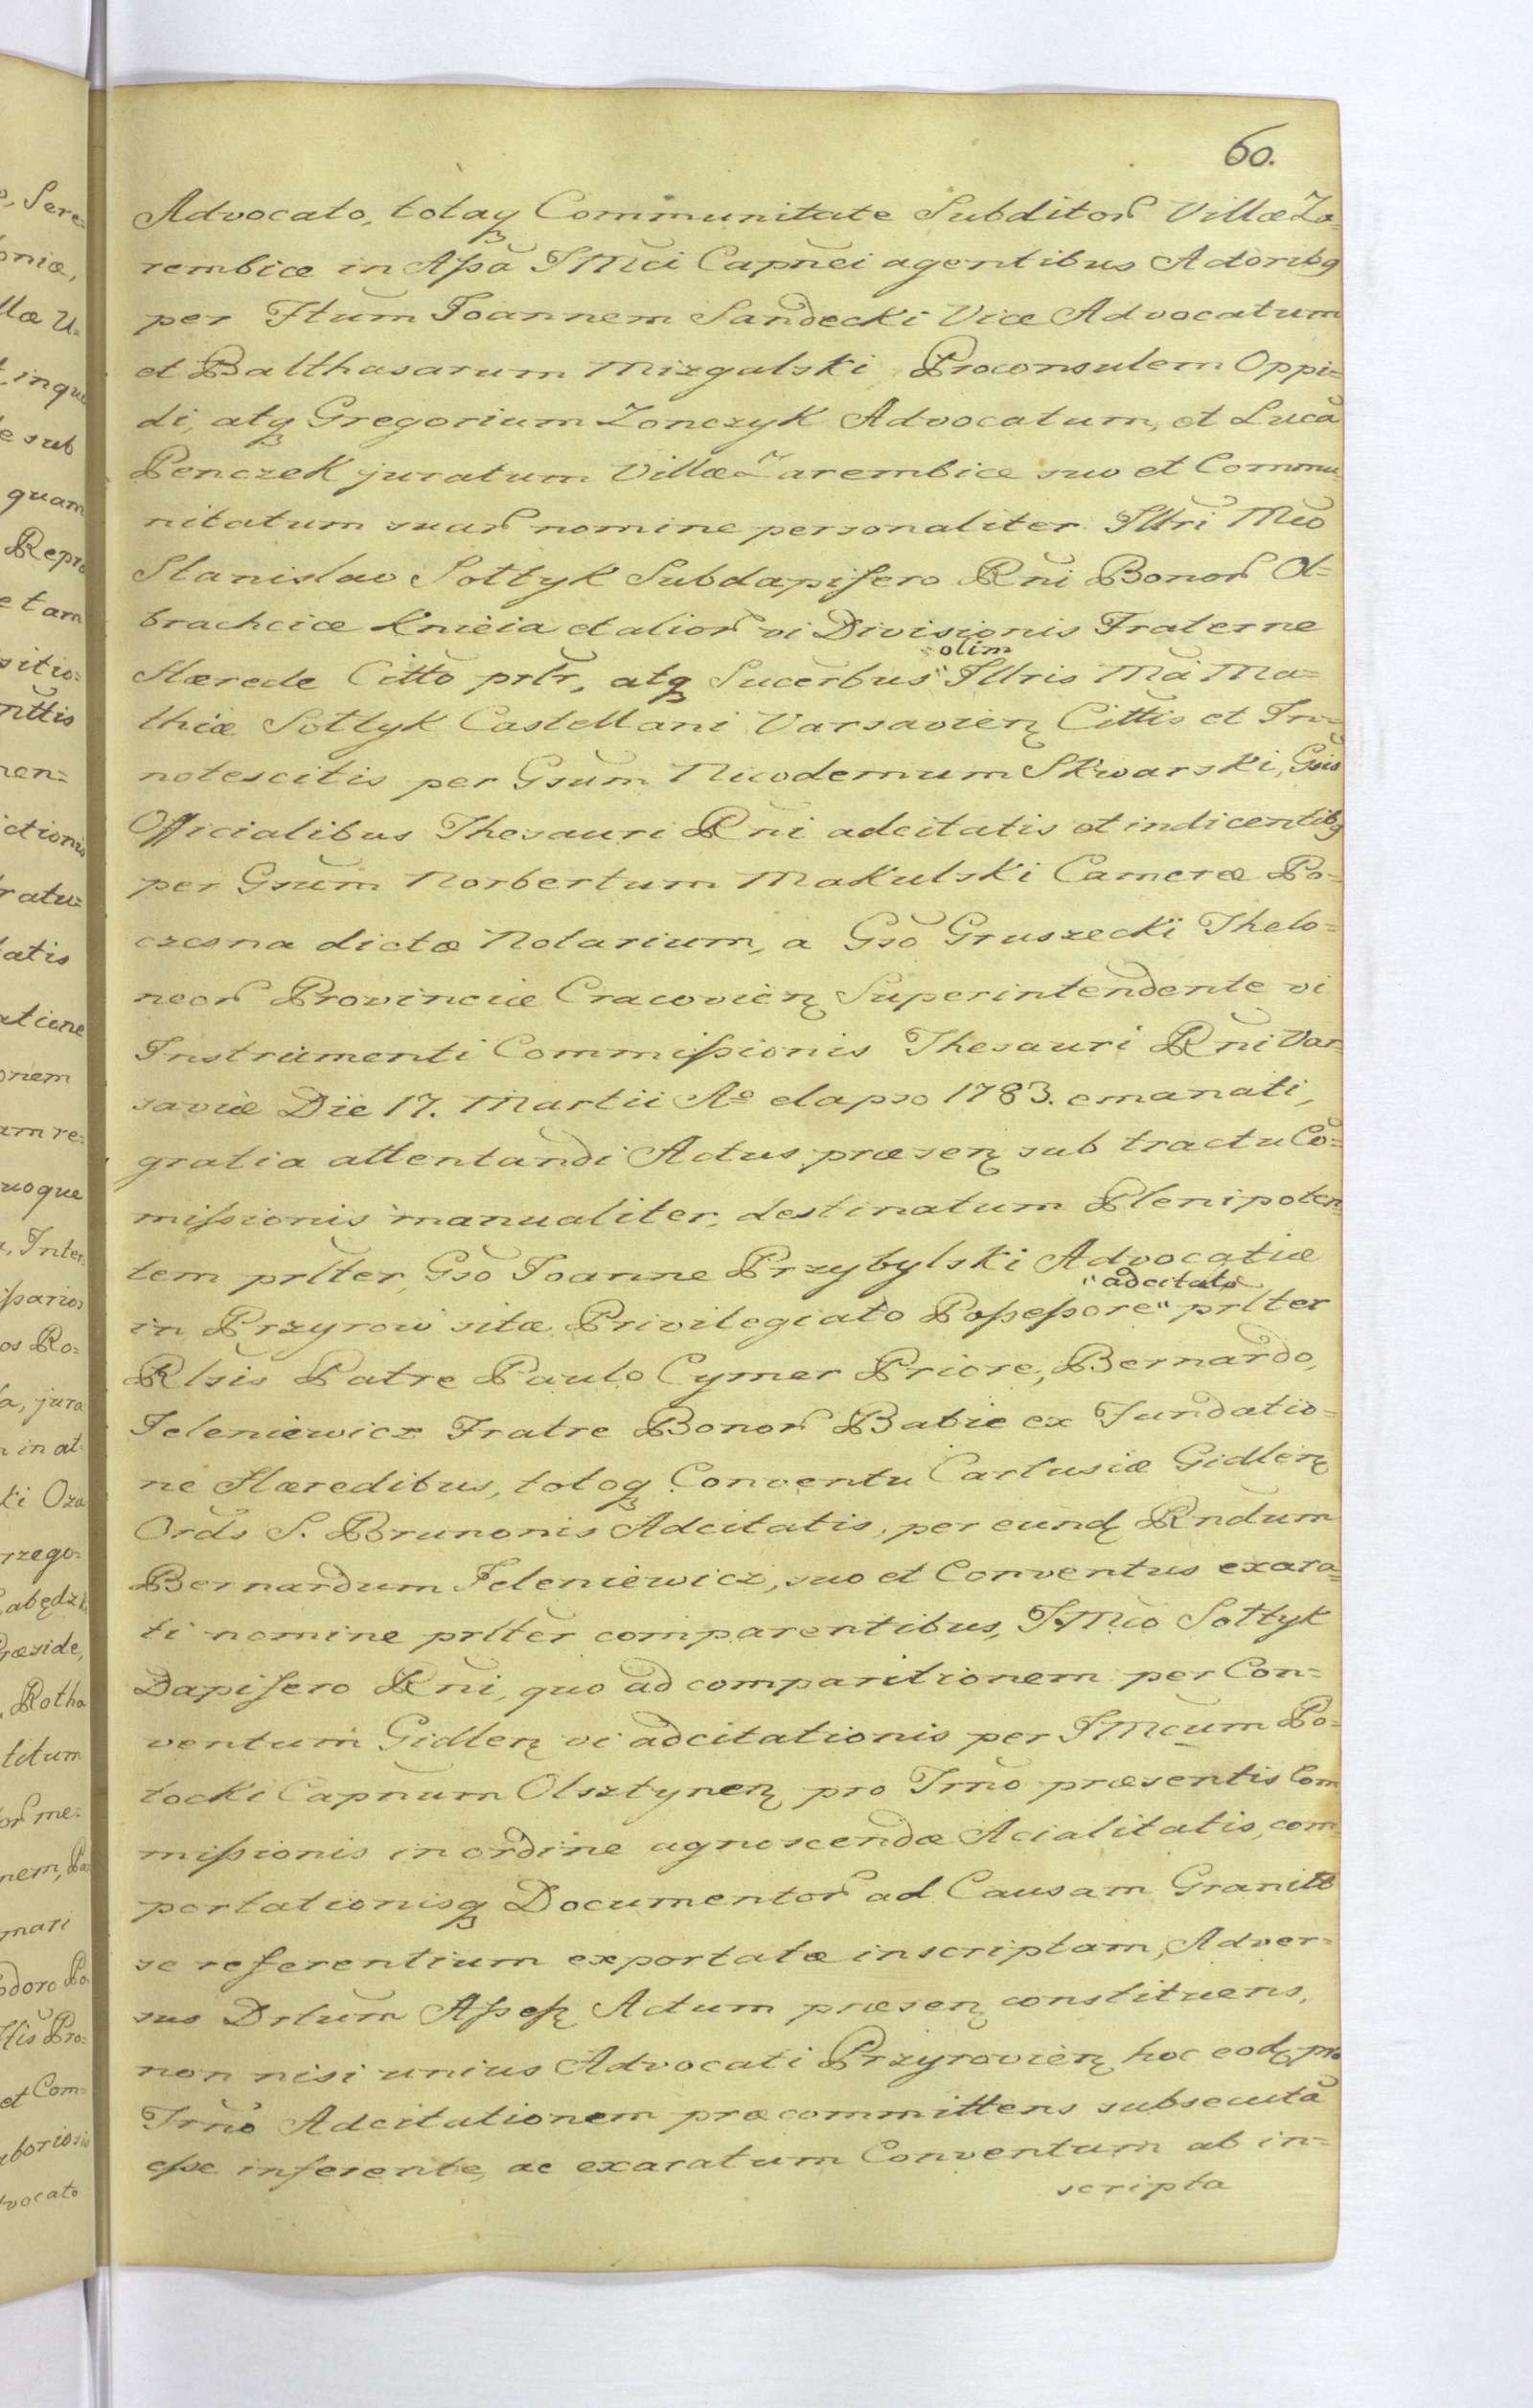 60.
Advocato, totaq Communitate Subditor Villæ Za=
rembice in Aßa IMci Capnei agentibus Actoribq
per Ftum Joannem Sandecki Vice Advocatum
et Balthasarum Mizgalski Proconsulem Oppi=
di, atq Gregorium Zonczyk Advocatum, et Lucã
Penczek juratum Villæ Zarembice suo et Commu=
nitatum suar nomine personaliter Illri Mco
Stanislao Soltyk Subdapifero Rni Bonor Ol=
brachcice Knieia et alior vi Divisionis Fraterne
Hærede Citto prlr, atq Sucerbus "olim" Illris Ma Ma=
thiæ Soltyk Castellani Varsavien Cittis et In=
notescitis per Gsum Nicodemum Skwarski, Gsis
Officialibus Thesauri Rni adcitatis et indicentibq
per Gsum Norbertum Makulski Cameræ Po=
czesna dictæ Notarium, a Gso Gruszecki Thelo=
neor Provinciæ Cracovien Superintendente vi
Instrumenti Commißionis Thesauri Rni Var=
saviæ Die 17. Martii Ao elapso 1783. emanati,
gratia attentandi Actus præsen sub tractu Co=
mißionis manualiter, destinatum Plenipoten=
tem prlter, Gso Joanne Przybylski Advocatiæ
in Przyrow sitæ Privilegiato Poßeßore "adcitato" prlter
Rlsis Patre Paulo Cymer Priore, Bernardo
Jeleniewicz Fratre Bonor Babie ex Fundatio=
ne Hæredibus, totoq Conventu Cartusiæ Gidlen
Ords S. Brunonis Adcitatis, per eund Rndum
Bernardum Jeleniewicz, suo et Conventus exara=
ti nomine prlter comparentibus, IMco Soltyk
Dapifero Rni, quo ad comparitionem per Con=
ventum Gidlen vi adcitationis per IMcum Po=
tocki Capnum Olsztynen pro Trno præsentis Com=
mißionis in ordine agnoscendæ Acialitatis, com=
portationisq Documentor ad Causam Granitt
se referentium exportatæ inscriptam, Adver=
sus Drtum Aßeß Actum præsen constituens,
non nisi unius Advocati Przyrovien hoc eod pro
Trno Adcitationem præcommittens subsecutã
eße inferente, ac exaratum Conventum ab in=
scripta